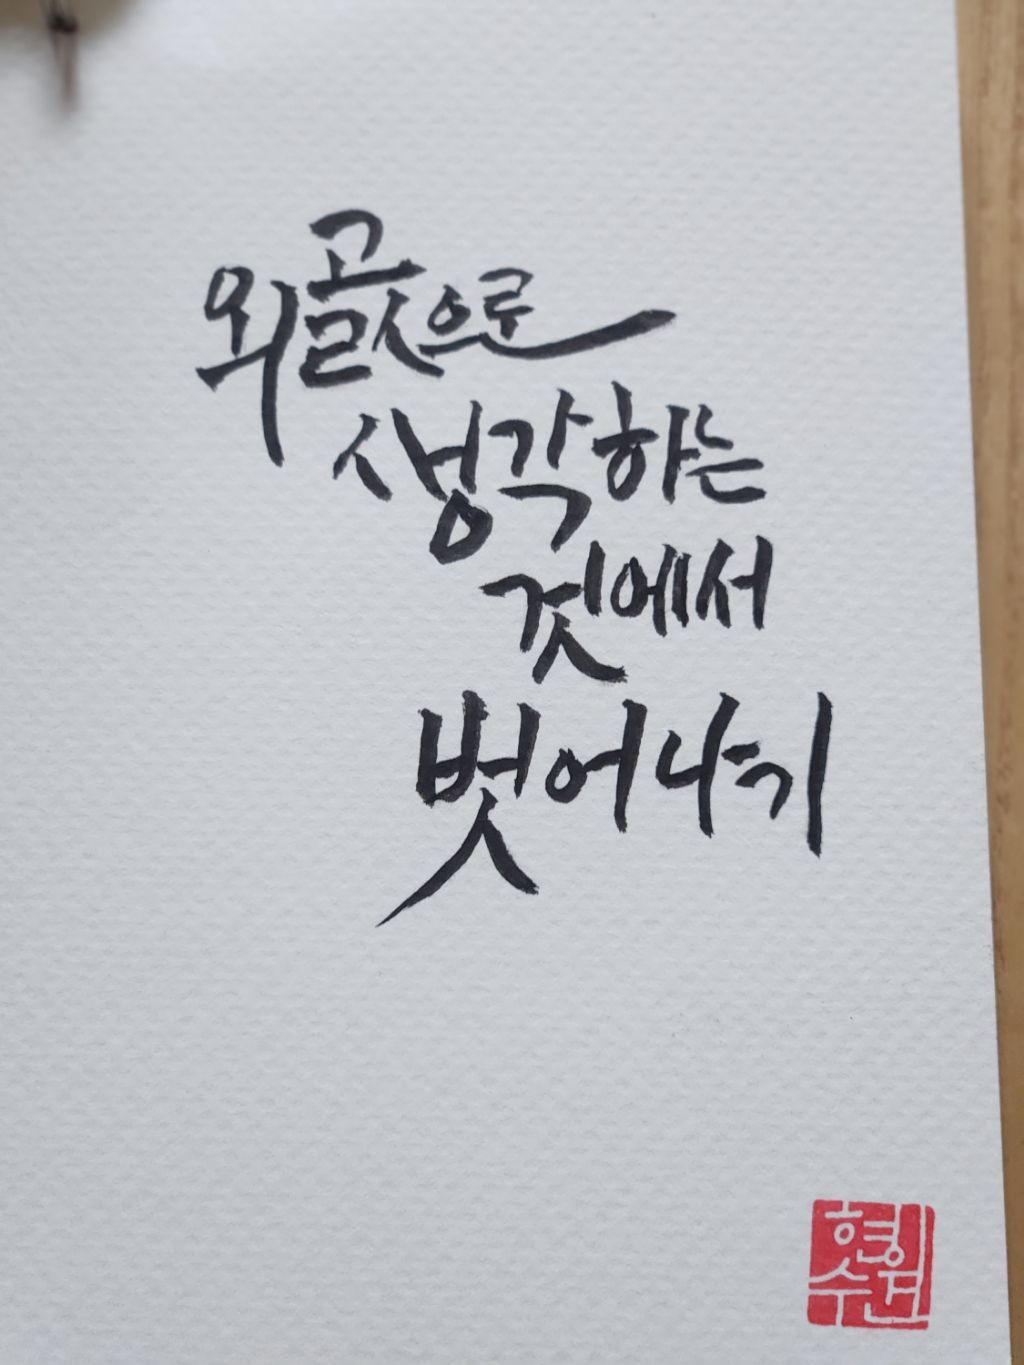 외곬으로
생각하는
것에서
벗어나기